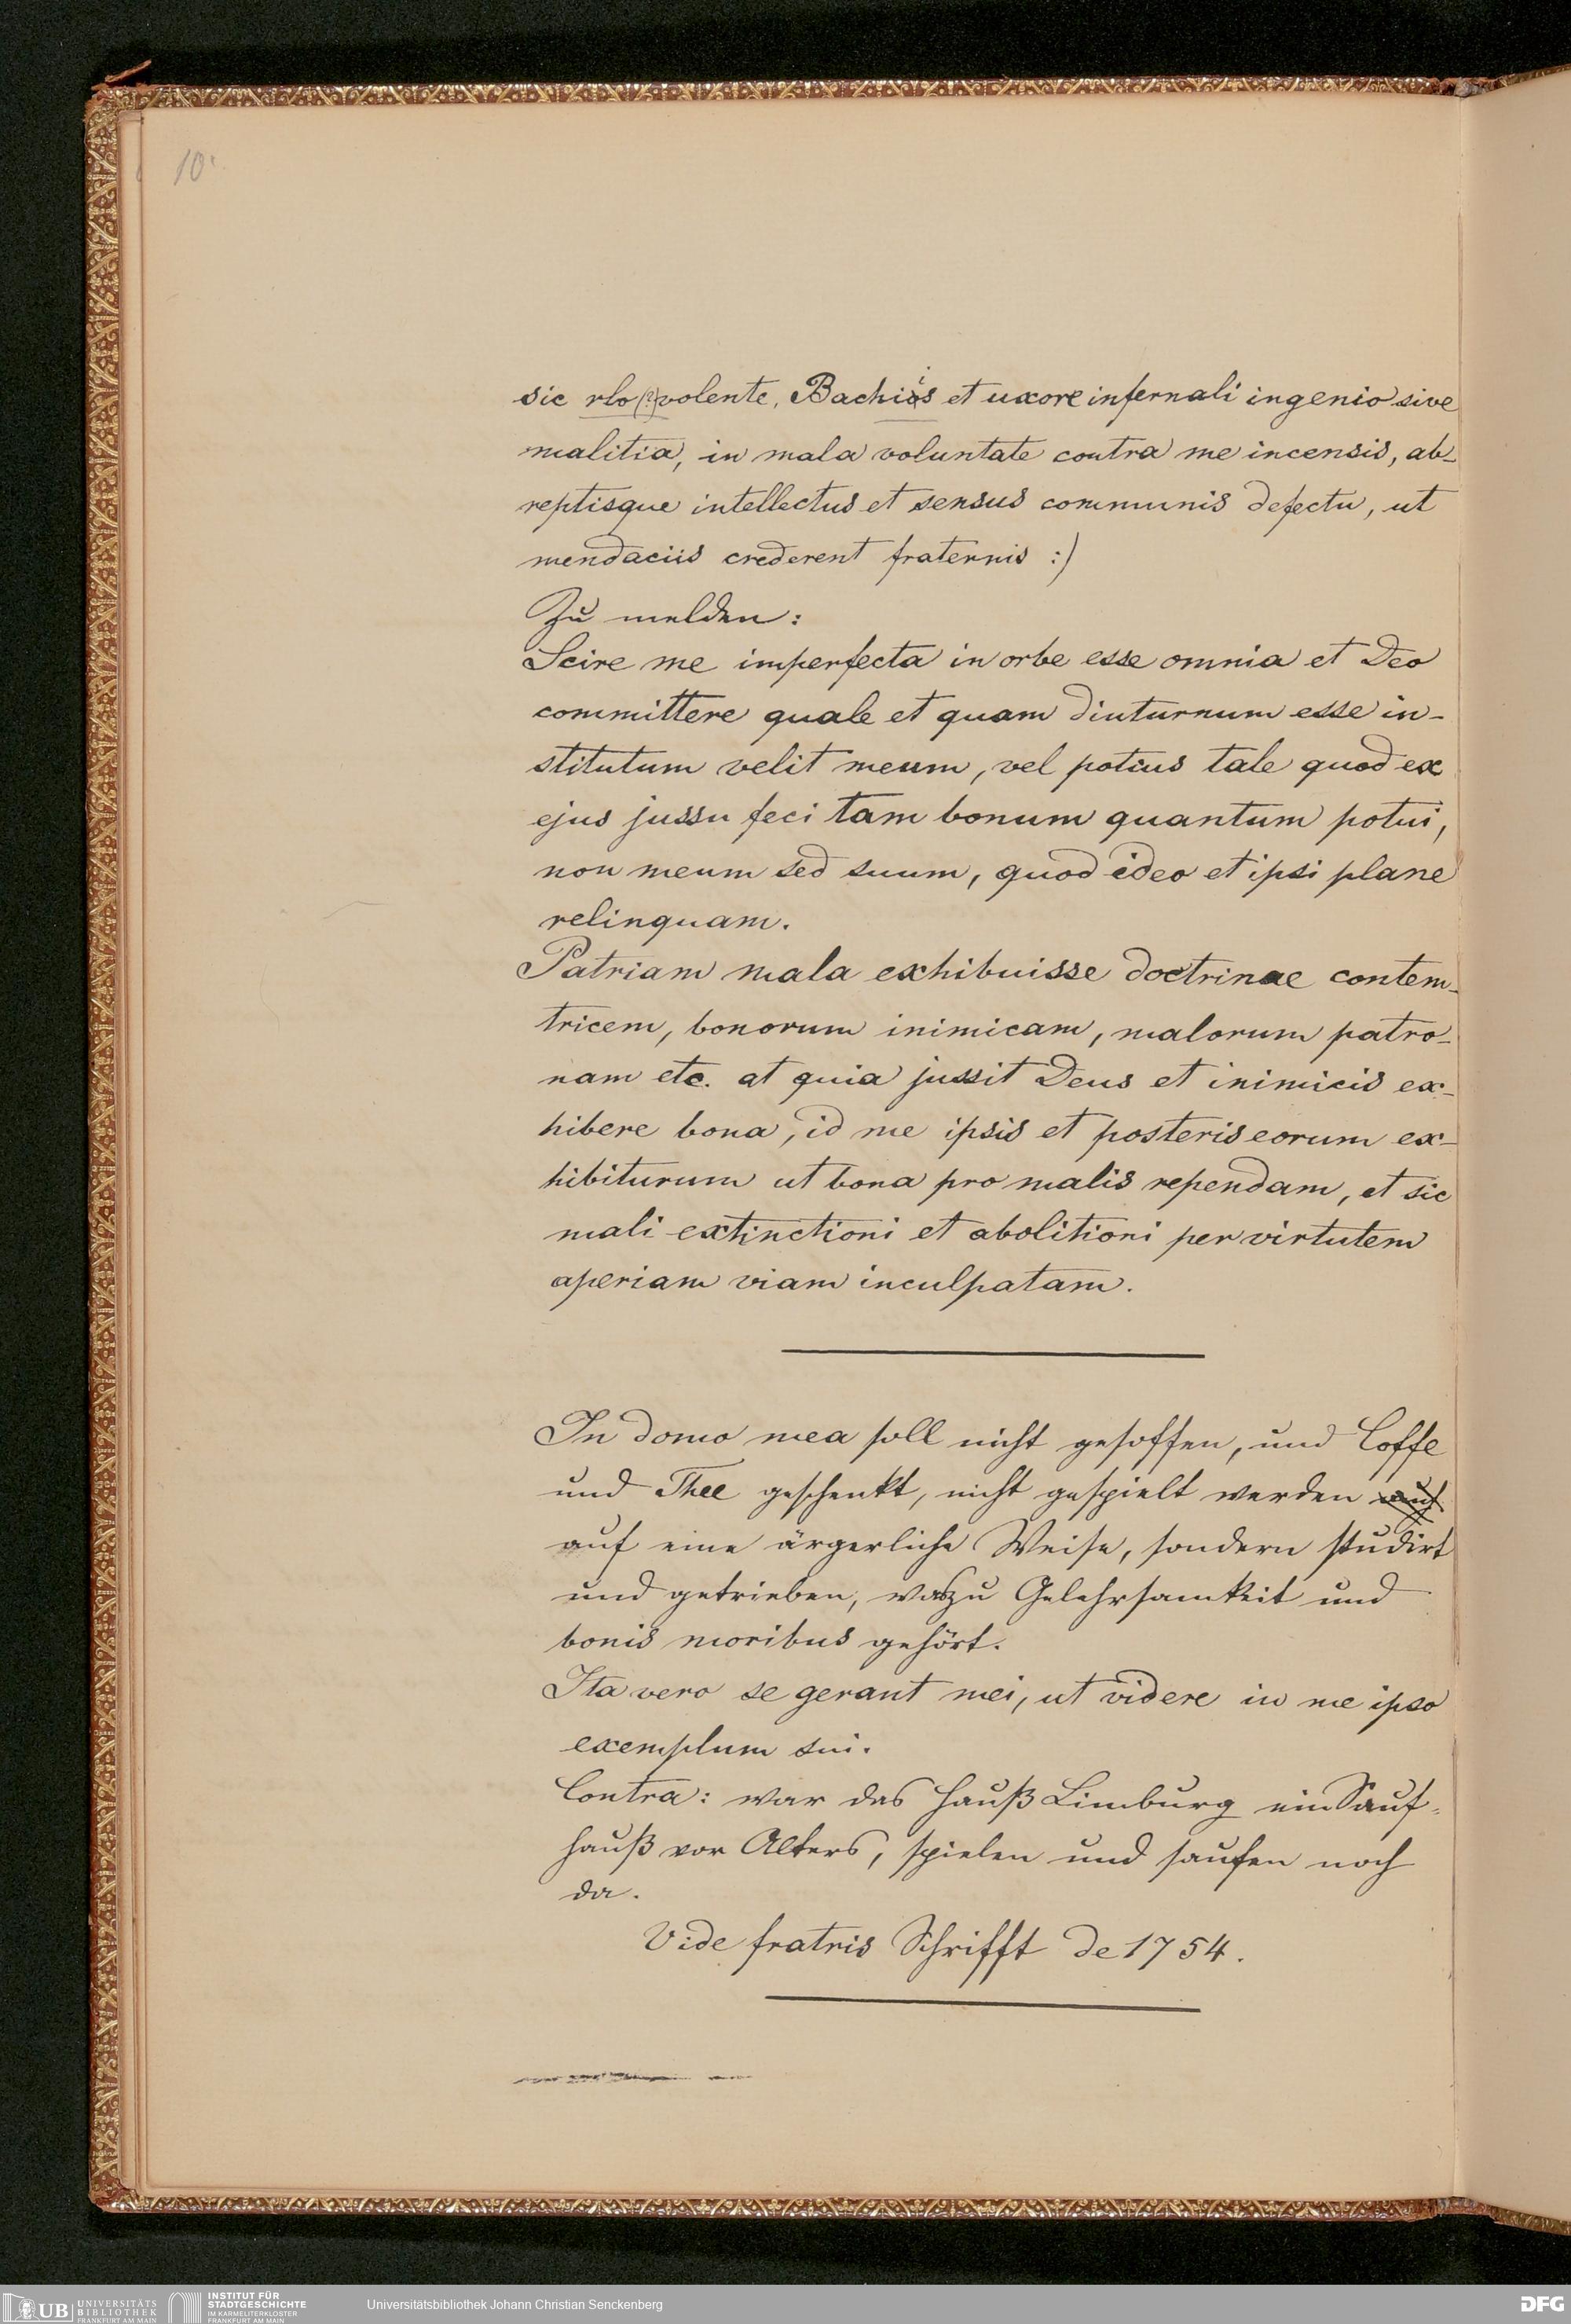 10.
sic rlo (?) volente, Bachiis et uxore infernali ingenio sive
malitia, in mala voluntate contra me incensis, ab-
reptisque intellectus et sensus communis defectu, ut
mendaciis crederent fraternis :)
Zu melden:
Scire me imperfecta in orbe esse omnia et Deo
committere quale et quam diuturnum esse in-
stitutum velit meum, vel potius tale quod ex
ejus jussu feci tam bonum quantum potui,
non meum sed suum, quod ideo et ipsi plane
relinquam.
Patriam mala exhibuisse doctrinae contem-
tricem, bonorum inimicam, malorum patro-
nam etc. at quia jussit Deus et inimicis ex-
hibere bona, id me ipsis et posteris eorum ex-
hibiturum ut bona pro malis rependam, et sic
mali extinctioni et abolitioni per virtutem
aperiam viam inculpatam.
In domo mea soll nicht gesoffen, und Coffe
und Thee geschenkt, nicht gespielt werden auf
auf eine ärgerliche Weise, sondern studirt
und getrieben, was zu Gelehrsamkeit und
bonis moribus gehört.
Ita vero se gerant mei, ut videre in me ipso
exemplum sui.
Contra: war das Hauß Limburg ein Sauf-
hauß vor Alters, spielen und saufen noch
da.
Vide fratris Schrifft de 1754.
UB UNIVERSITÄTS
BIBLIOTHEK
FRANKFURT AM MAIN
INSTITUT FÜR
STADTGESCHICHTE
IM KARMELITERKLOSTER
FRANKFURT AM MAIN
Universitätsbibliothek Johann Christian Senckenberg
DFG